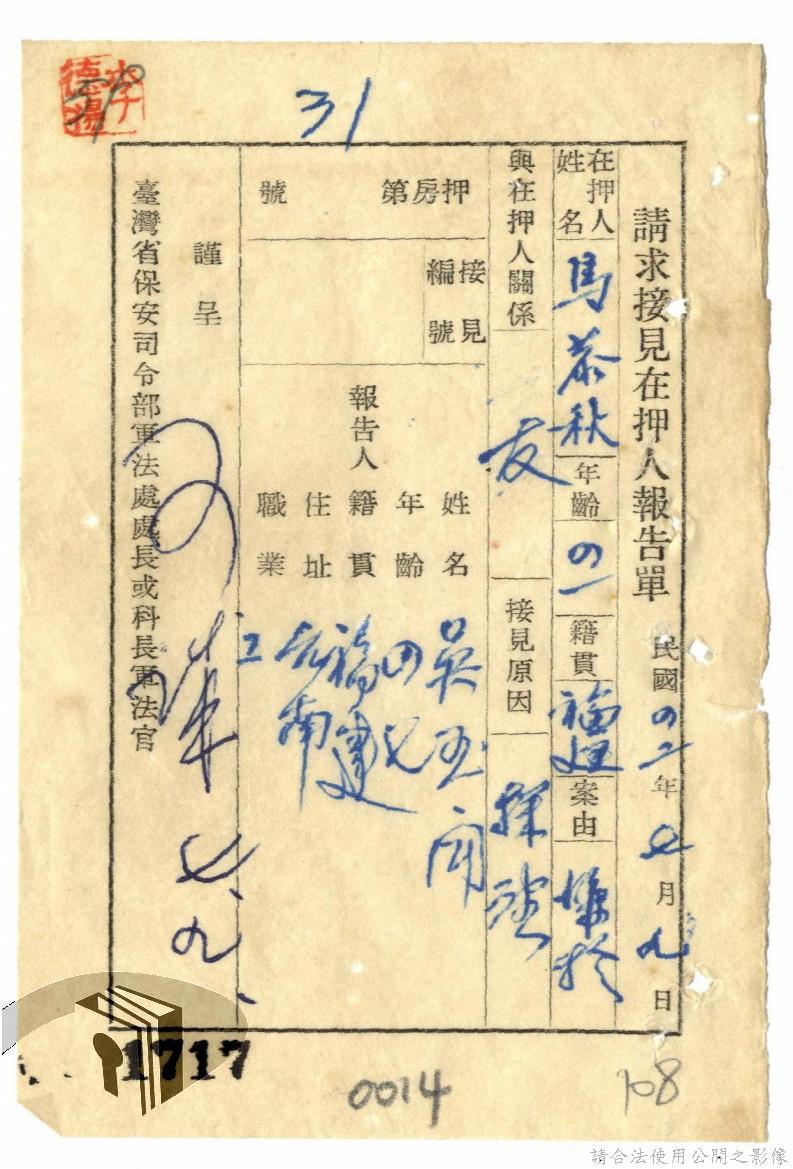 31
李德揚
請求接見在押人報告單 民國四二年七月九日
在押人姓名 馬恭秋 年齡 四一 籍貫 福建 案由
與在押人關係 友 接見原因 探望
押房第 號
接見編號
報告人
姓名 吳玉
年齡 四七
籍貫 福建
住址 台南市
職業 工
謹呈
臺灣省保安司令部軍法處處長或科長軍法官
可
七、九、
1717
0014
108
請合法使用公開之影像